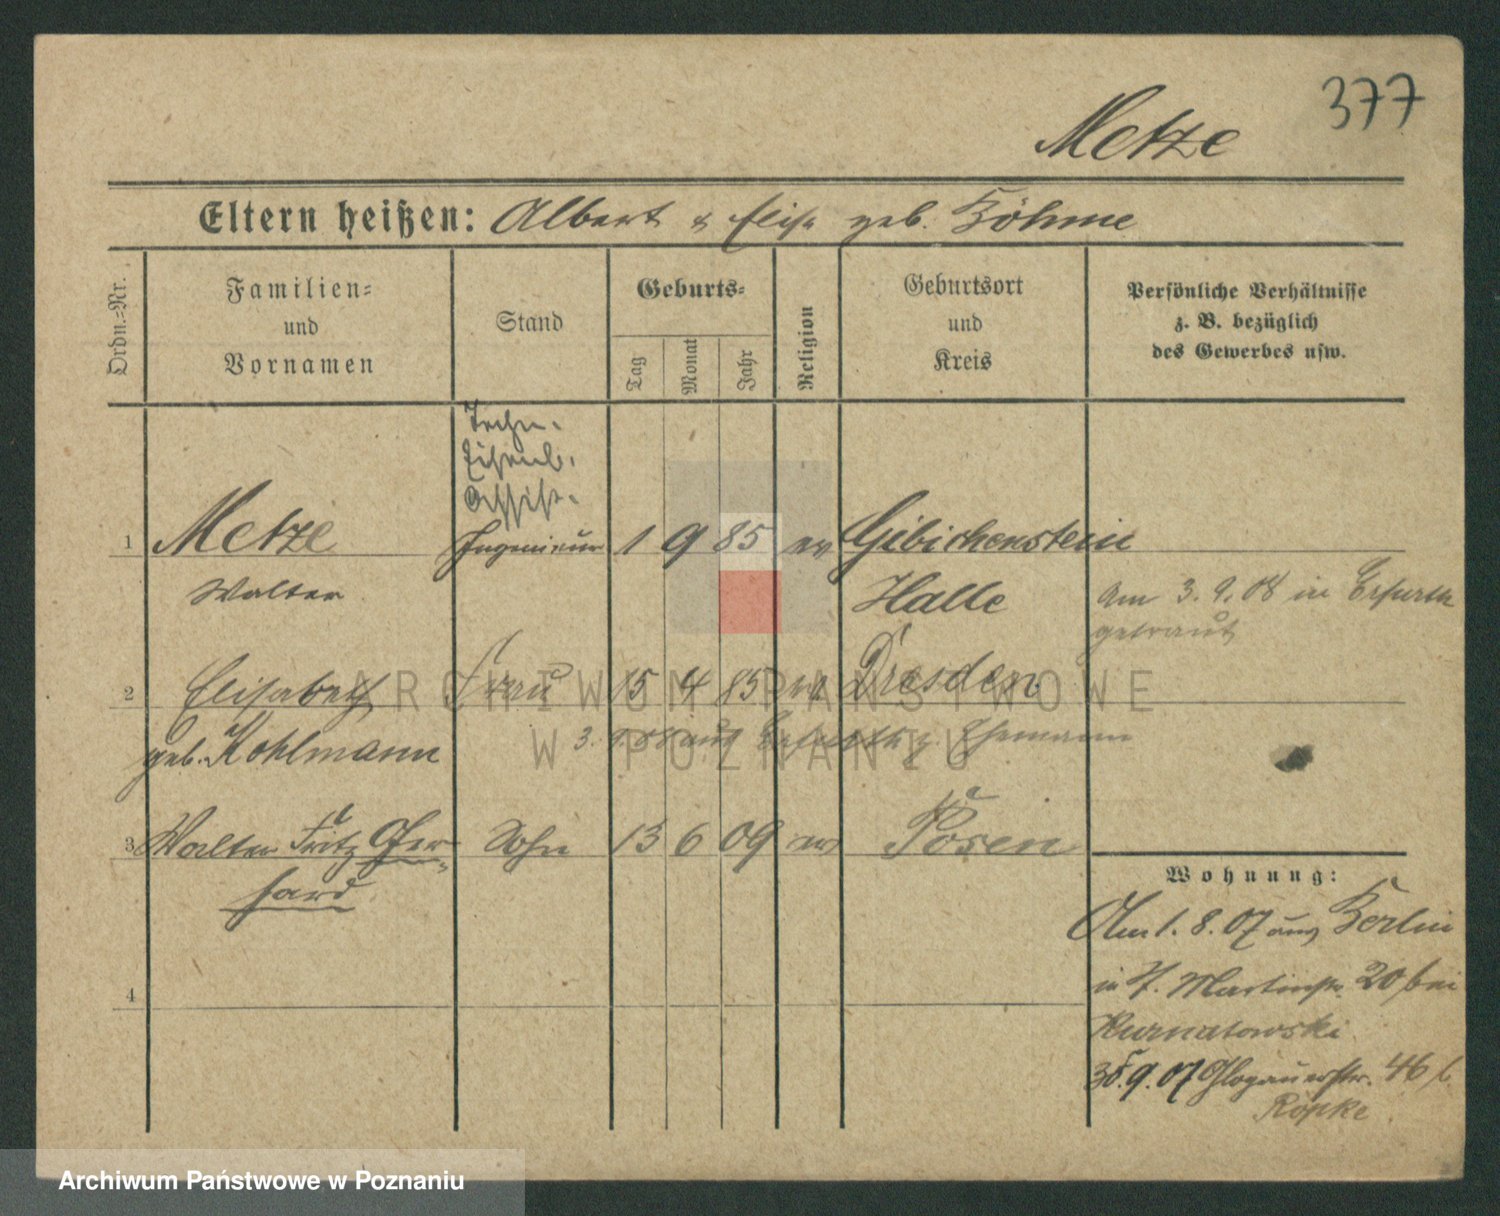 377
Metze
Eltern heißen: Albert & Elise geb. Böhme
Ordn.=Nr.
Familien=
und
Vornamen
Stand
Geburts=
Tag
Monat
Jahr
Religion
Geburtsort
und
Kreis
Persönliche Verhältnisse
z. B. bezüglich
des Gewerbes usw.
Techn.
Eisenb.
Assist.
1 Metze Ingenieur 1 9 85 ev Gibichenstein
Walter Halle
am 3.9.08 in Erfurth
getraut
2 Elisabeth Frau 15 4 85 ev Dresden
geb. Kohlmann 3. 9. 08 aus Erfurth z. Ehemann
3 Walter Fritz Ger-
hard
Sohn 13 6 09 ev Posen
4
Wohnung:
Am 1. 8. 07 aus Berlin
in St. Martinstr. 20 bei
Kurnatowski
30.9.07 Glogauerstr. 46 b.
Röpke
ARCHIWUM PAŃSTWOWE
W POZNANIU
Archiwum Państwowe w Poznaniu